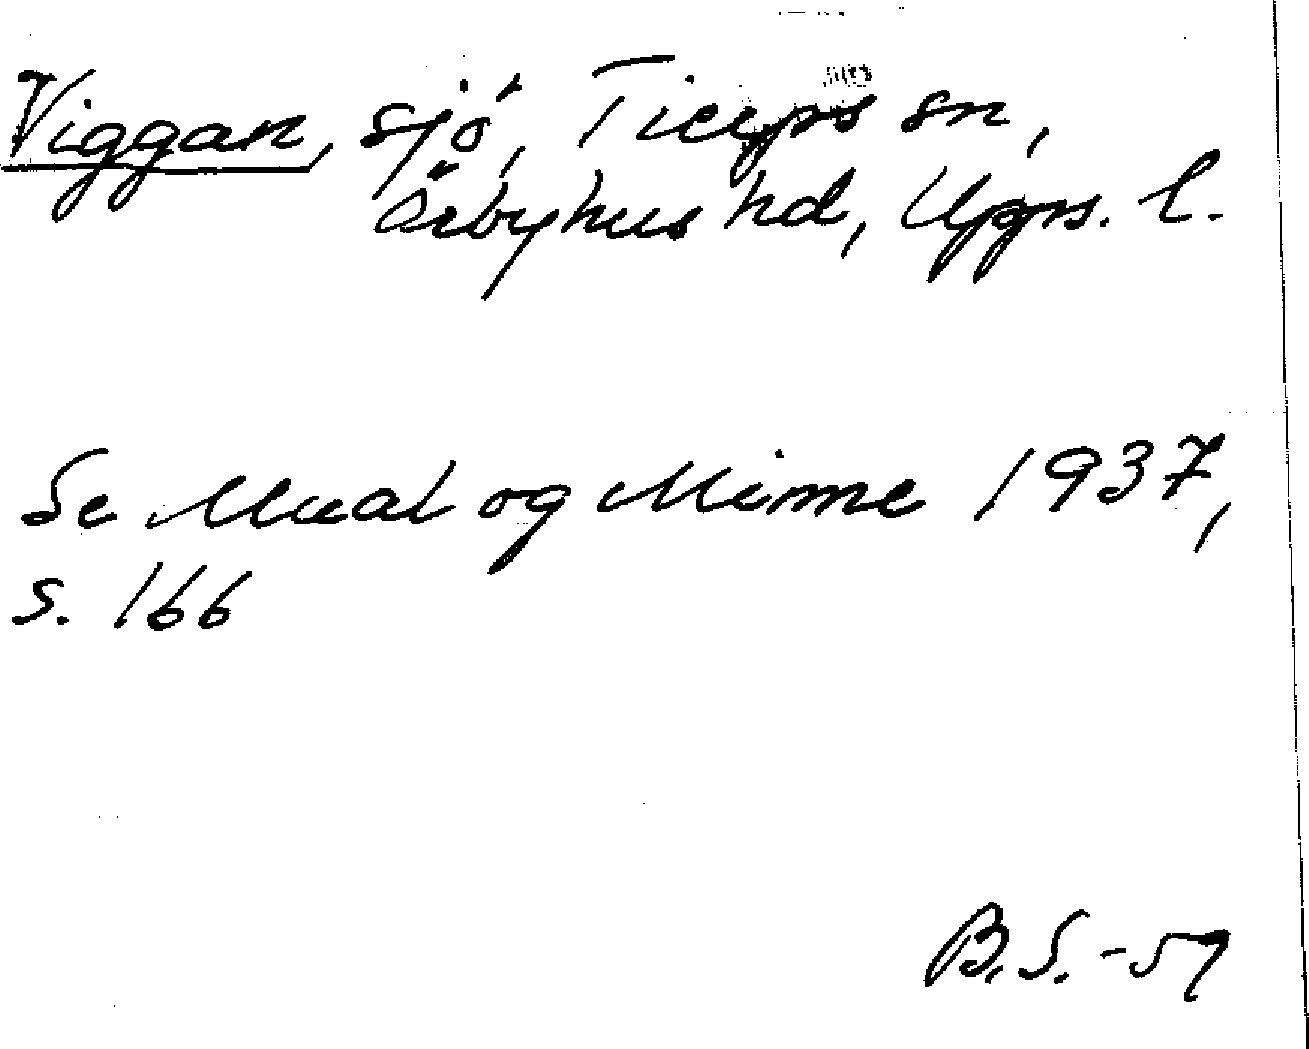 Viggan, sjö, Tierps sn,
Örbyhus hd, Upps. l.
Se Maal og Minne 1937,
s. 166
B.S.-57